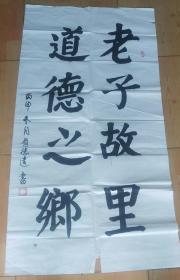 老子故里
道德之鄉
丙申冬月